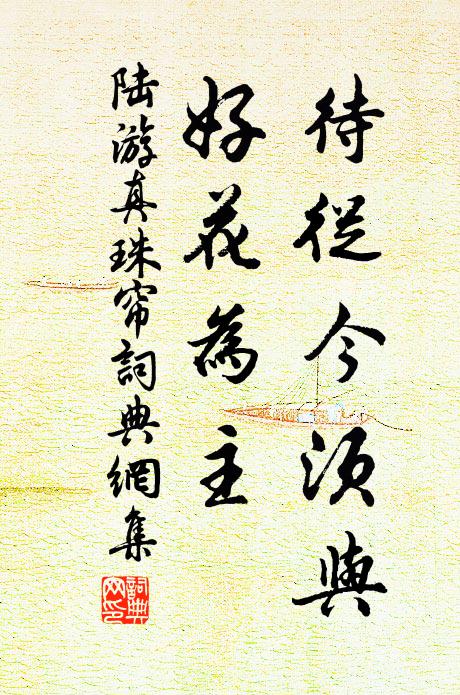 待從今須與
好花為主
陸游真珠帘詞典網集
詞典
网印